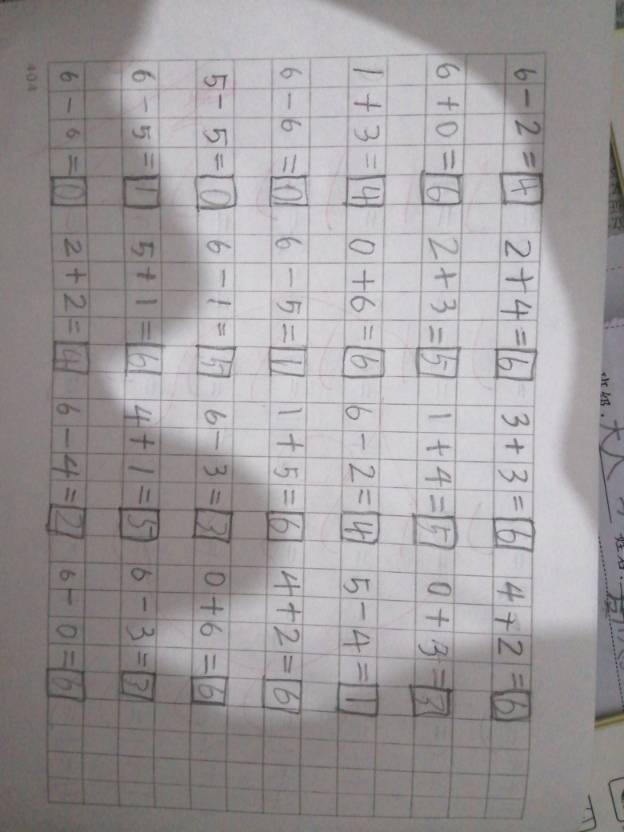 6-2=4 2+4=6 3+3=6 4+2=6
6+0=6 2+3=5 1+4=5 0+3=3
1+3=4 0+6=6 6-2=4 5-4=1
6-6=0 6-5=1 1+5=6 4+2=6
5-5=0 6-1=5 6-3=3 0+6=6
6-5=1 5+1=6 4+1=5 6-3=3
6-6=0 2+2=4 6-4=2 6-0=6
404
大人